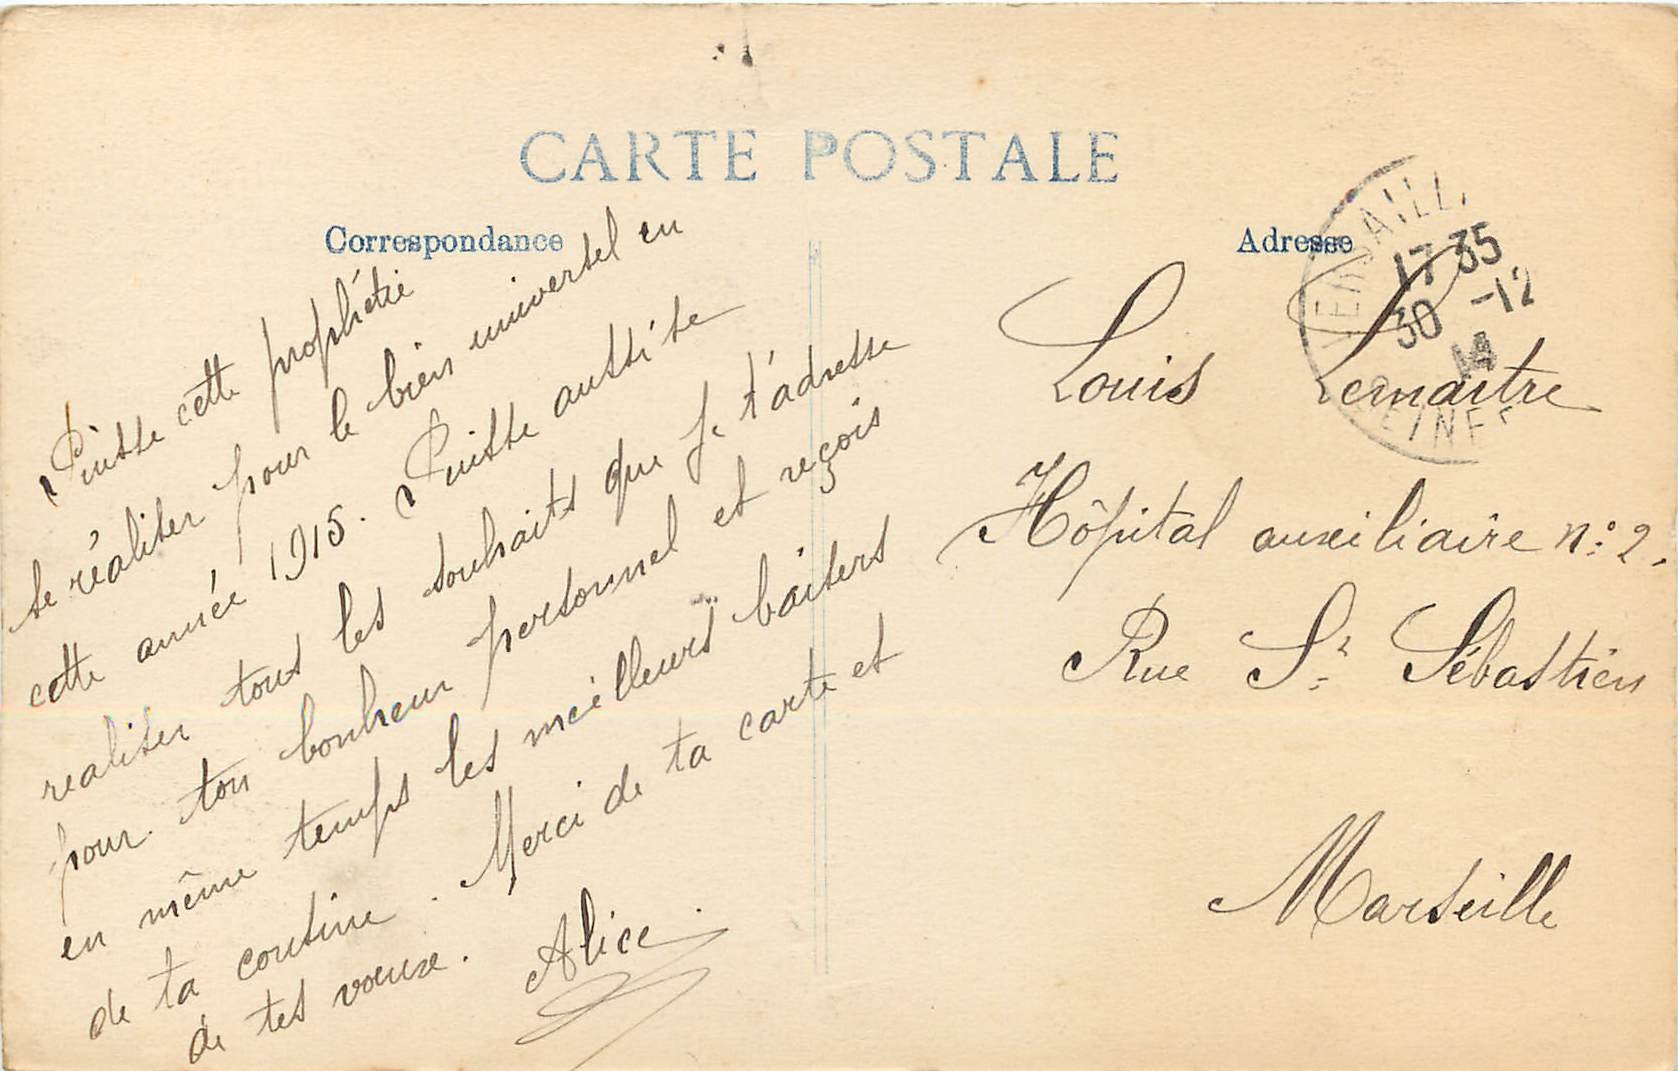 CARTE POSTALE
Correspondance
Puisse cette prophétie
se réaliser pour le bien universel en
cette année 1915. Puisse aussi se
realiser tous les souhaits que je t'adresse
pour ton bonheur personnel et reçois
en même temps les meilleurs baisers
de ta cousine. Merci de ta carte et
de tes vœux. Alice.
Adresse
17 35
30 -12
14
Louis Lemaitre
Hôpital auxiliaire n° 2.
Rue St Sébastien
Marseille